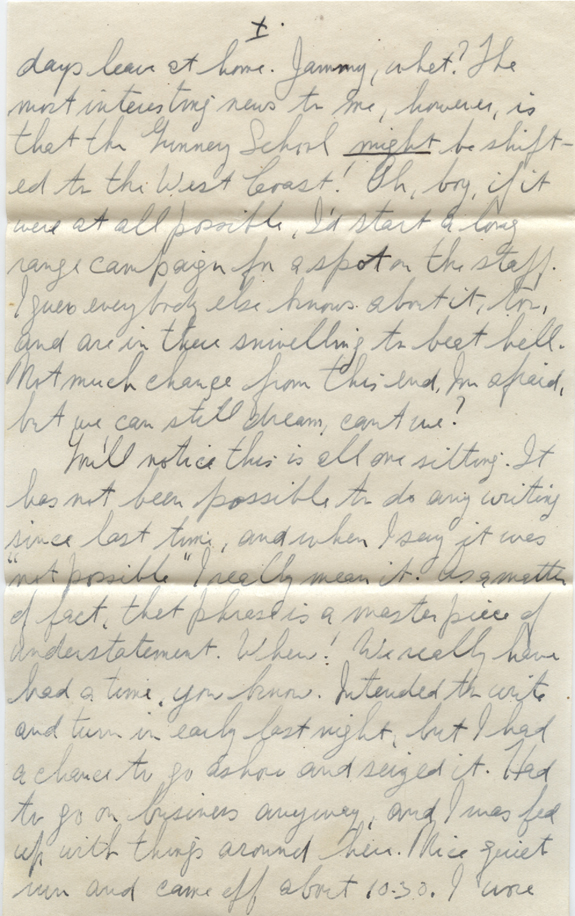 X.
days leave at home. Jammy, what? The
most interesting news to me, however, is
that the Gunnery School might be shift-
ed to the West Coast! Oh, boy, if it
were at all possible, I'd start a long
range campaign for a spot on the staff.
I guess everybody else knows about it, too,
and are in there snivelling to beat hell.
Not much change from this end, I'm afraid,
but we can still dream, can't we?
You'll notice this is all one sitting. It
has not been possible to do any writing
since last time, and when I say it was
"not possible" I really mean it. As a matter
of fact, that phrase is a masterpiece of
understatement. Whew! We really have
had a time, you know. Intended to write
and turn in early last night, but I had
a chance to go ashore and seized it. Had
to go on business anyway, and I was fed
up with things around here. Nice quiet
run and came off about 10:30. I wore